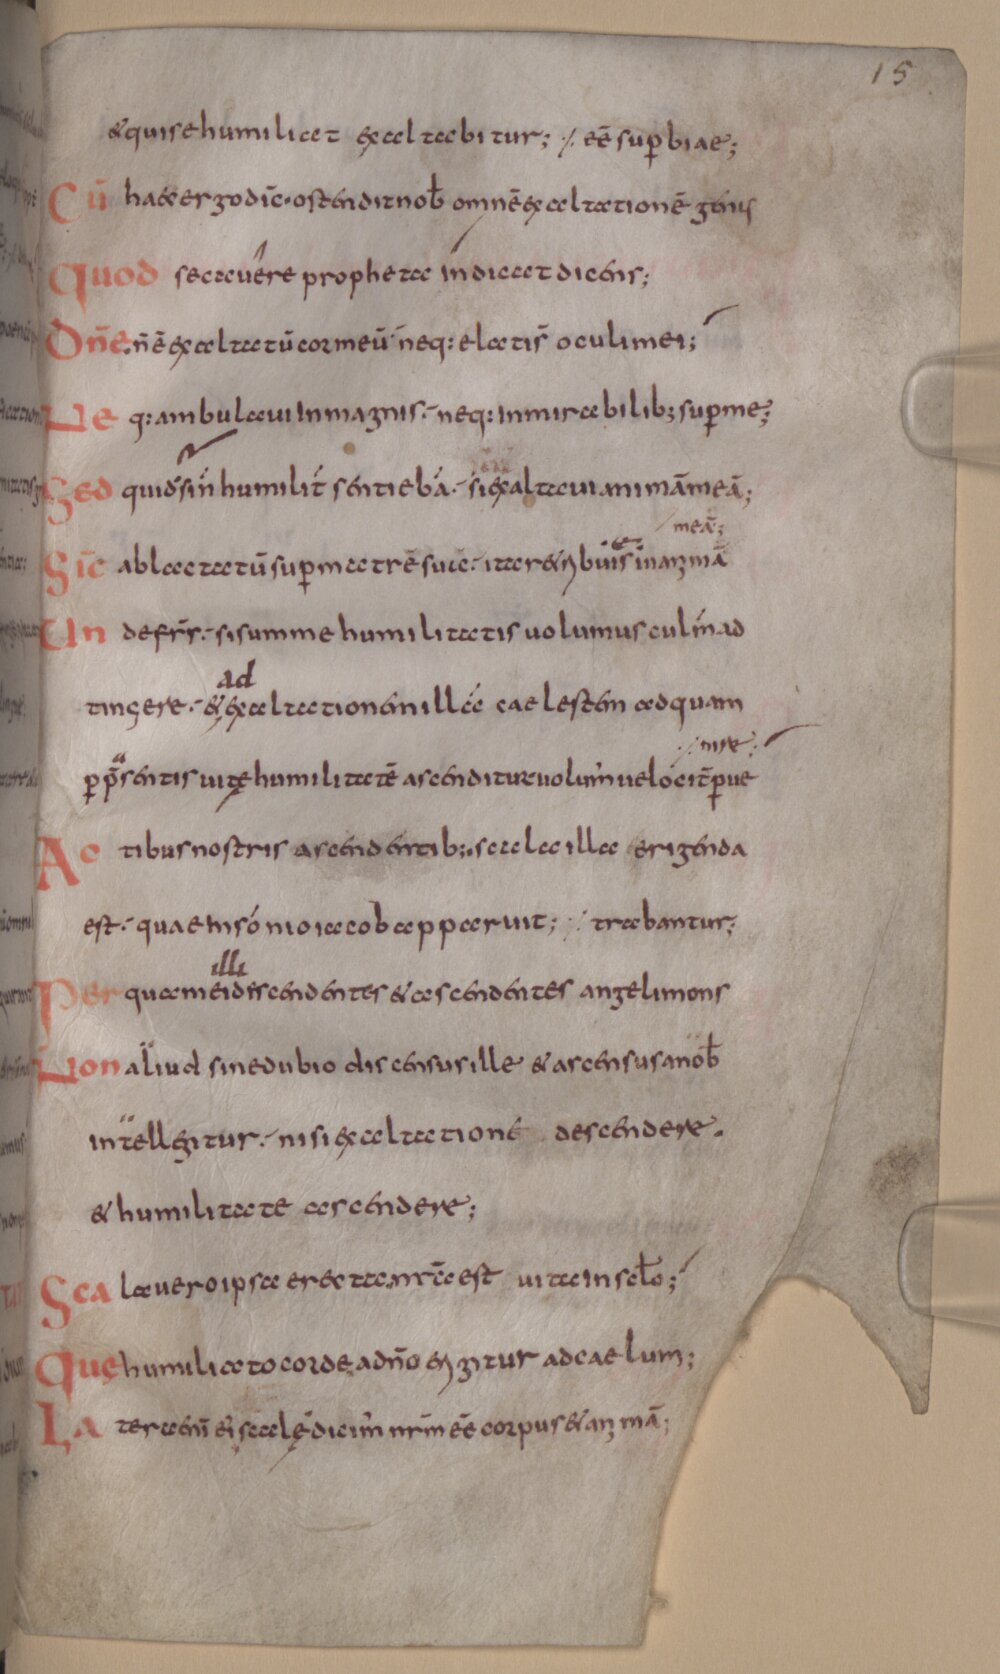 15
&quisehumiliat exaltabitur; ⁒ eē suꝑbiae;
Cū haec ergo dic̄· ostendit nob̄ omnē exaltationē genus
Quod se cavere propheta indicat dicens;
Dn̄e· n̄ ē exaltatū cor meū· neq: elati s̄ oculi mei;
Neq: ambulavi in magnis· neq: in mirabilib; suꝑ me;
Sed quid si n̄ humilit̄ sentiebā· si exaltavi animā meā;
meā;
Sic ablactatū suꝑ matrē suā· ita retribuis in animā
Unde frr̄· si summe humilitatis volumus culmen ad
ad
tingere· & exaltationem illā caelestem ad quam
⁒ nire;
ꝑ p̄sentis vitę humilitatē ascenditur volum̄ velocit̄ ꝑve
Actibus nostris ascendentib; scala illa erigenda
est· quae in somnio iacob apparuit; ⁒ trabantur;
illi
Per quam ei discendentes & ascendentes angeli mons
Non aliud sine dubio discensus ille & ascensus a nob̄
intellegitur· nisi exaltatione descendere·
& humilitate ascendere;
Scala vero ipsa erecta nr̄a est vita in sc̄lo;
Que humiliato corde a dn̄o erigitur ad caelum;
Latera enī ei scalę dicim̄ nr̄m eē corpus & animā;